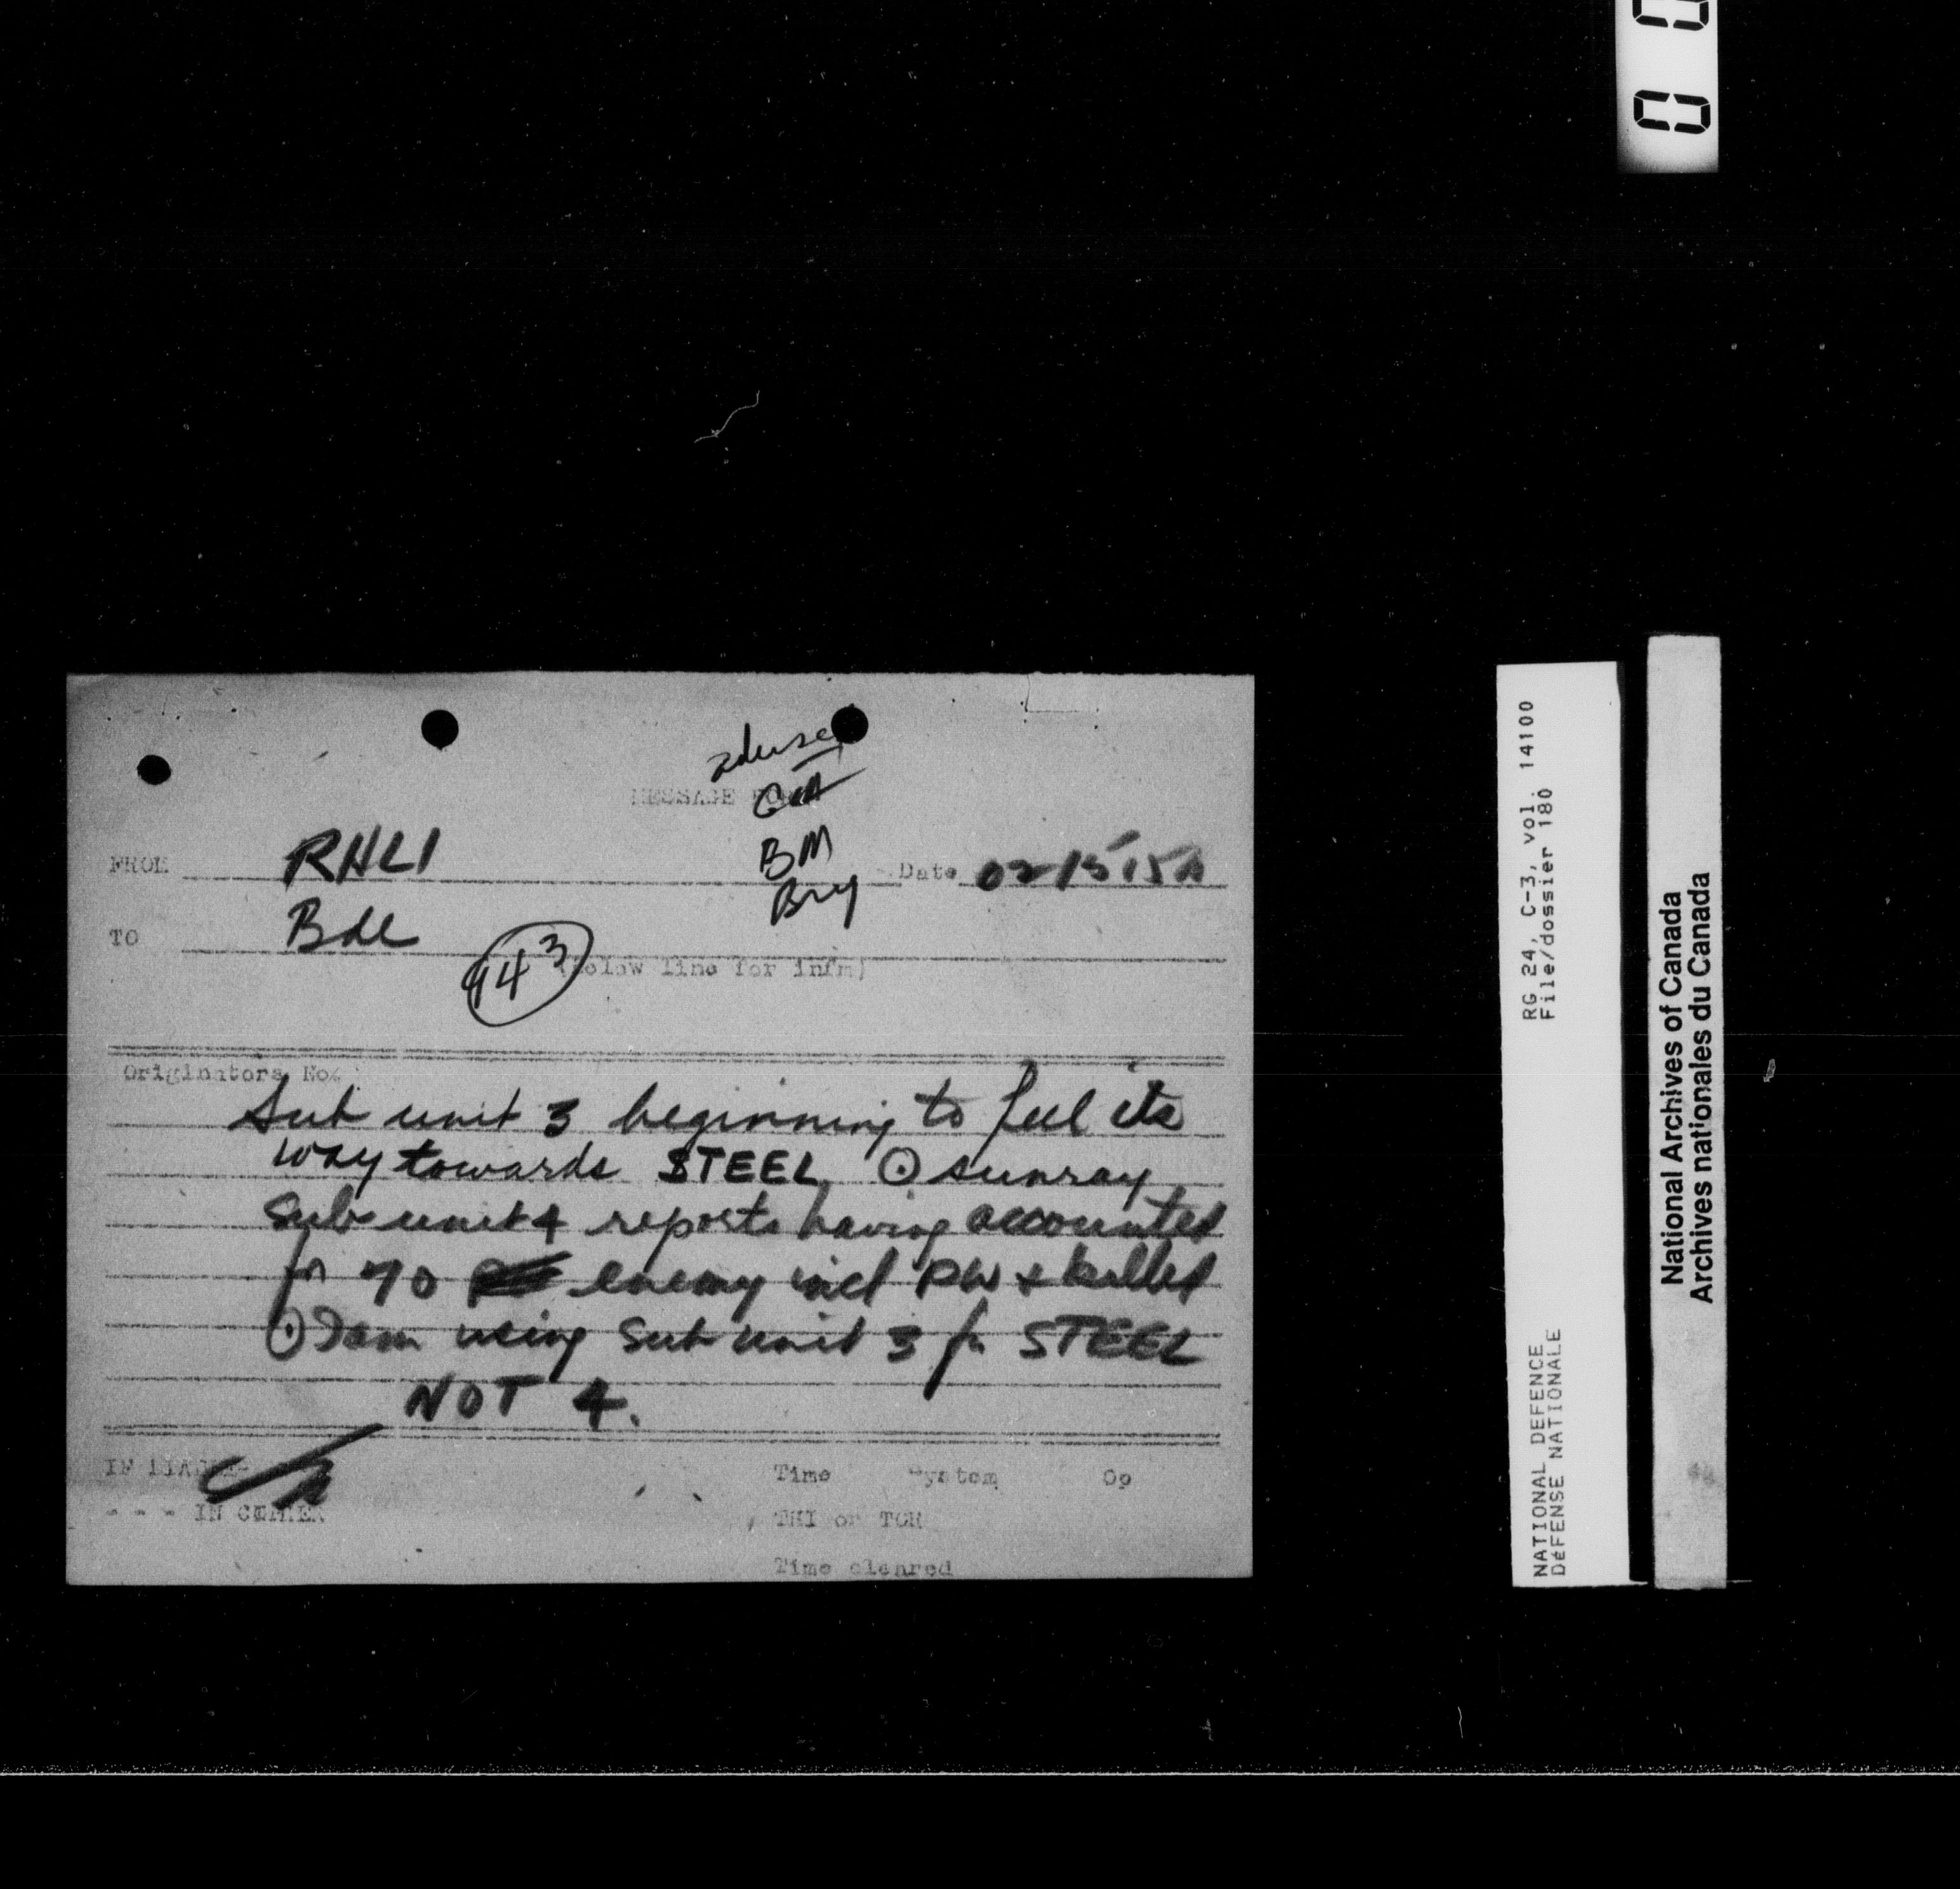 MESSAGE FORM
BM
Bry
FROM RHLI Date 021515A
TO Bde
143
(below line for infm)
Originators No.
Sub unit 3 beginning to feel its
way towards STEEL ⊙ sunray
Sub unit 4 reports having accounted
for 70 enemy incl PW & killed
⊙ I am using Sub unit 3 for STEEL
NOT 4.
IF LIABLE
- - - IN CIPHER
Time System Op
THI or TOR
Time cleared
RG 24, C-3, vol. 14100
File/dossier 180
NATIONAL DEFENCE
DéFENSE NATIONALE
National Archives of Canada
Archives nationales du Canada